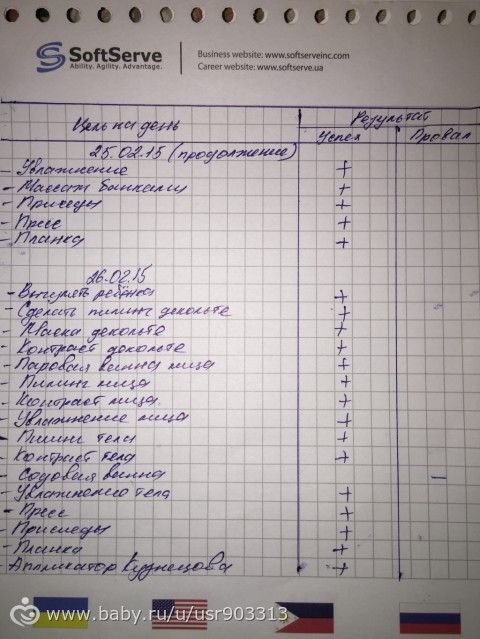 SoftServe
Ability. Agility. Advantage.
Business website: www.softserveinc.com
Career website: www.softserve.ua
Цель на день
Результат
Успех
Провал
25.02.15 (продолжение)
- Увлажнение +
- Массаж банками +
- Приседы +
- Пресс +
- Планка +
26.02.15
- Выгулять ребёнка +
- Сделать пилинг декольте +
- Маска декольте +
- Контраст декольте +
- Паровая ванна лица +
- Пилинг лица +
- Контраст лица +
- Увлажнение лица +
- Пилинг тела +
- Контраст тела +
- Содовая ванна –
- Увлажнение тела +
- Пресс +
- Приседы +
- Планка +
- Аппликатор Кузнецова +
www.baby.ru/u/usr903313